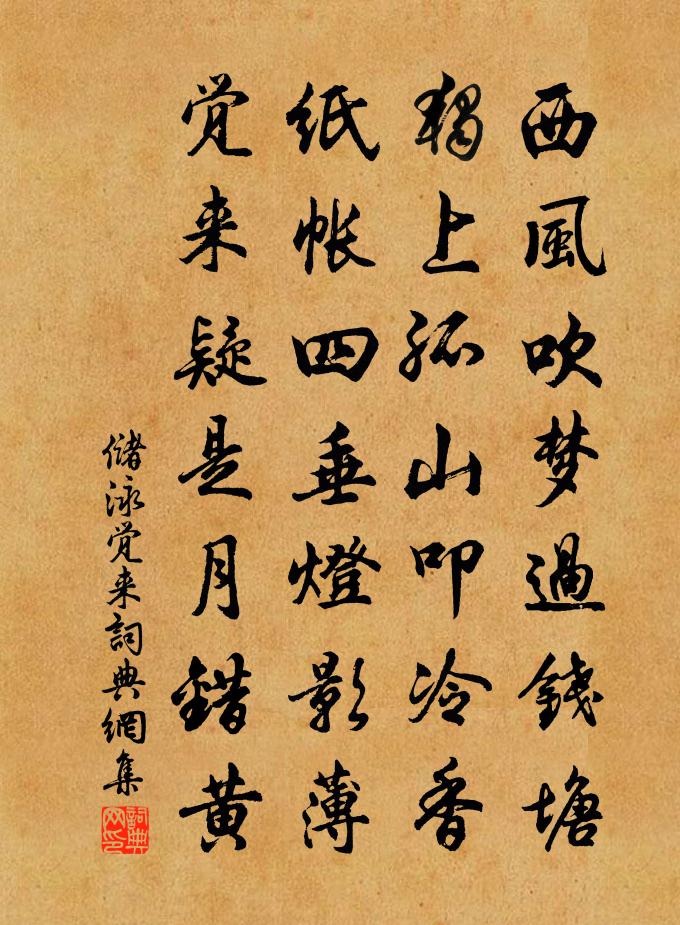 西風吹梦過錢塘
獨上孤山叩冷香
纸帐四垂燈影薄
觉来疑是月錯黄
儲泳觉来詞典網集
詞典网印